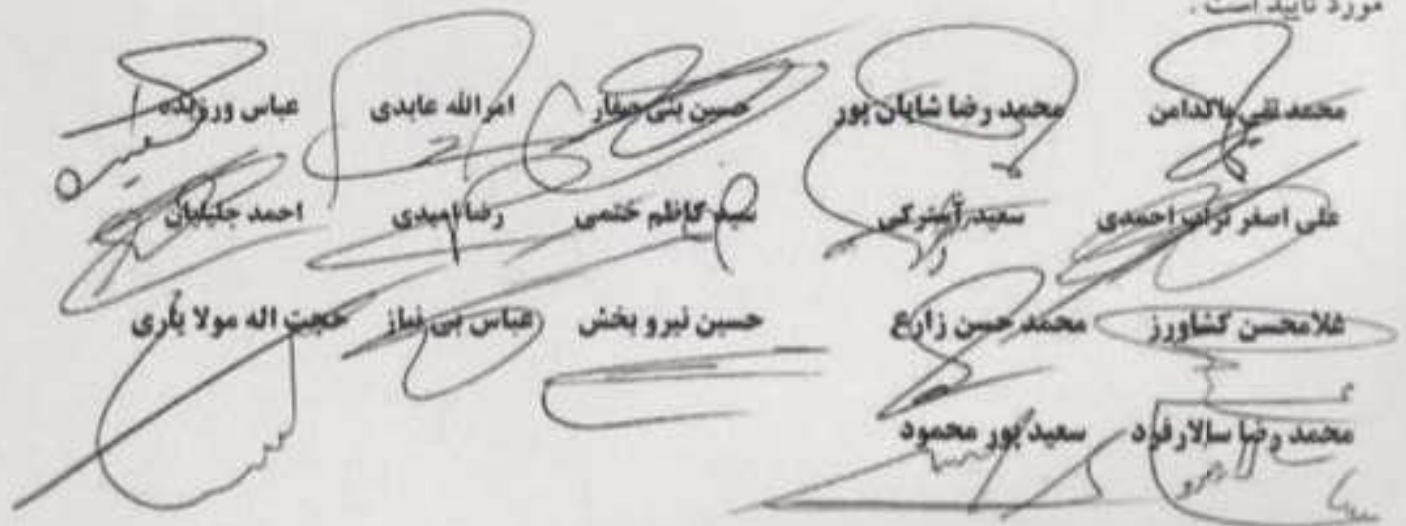 مورد تایید است .
محمد تقی پاکدامن محمد رضا شایان پور حسین بنی صفار امراله عابدی عباس ورزنده
علی اصغر تراب احمدی سعید آیترکی سید کاظم ختمی رضا امیدی احمد جلیلیان
غلامحسن کشاورز محمد حسن زارع حسین نیرو بخش عباس بی نیاز حجت اله مولا یاری
محمد رضا سالارفرد سعید پور محمود